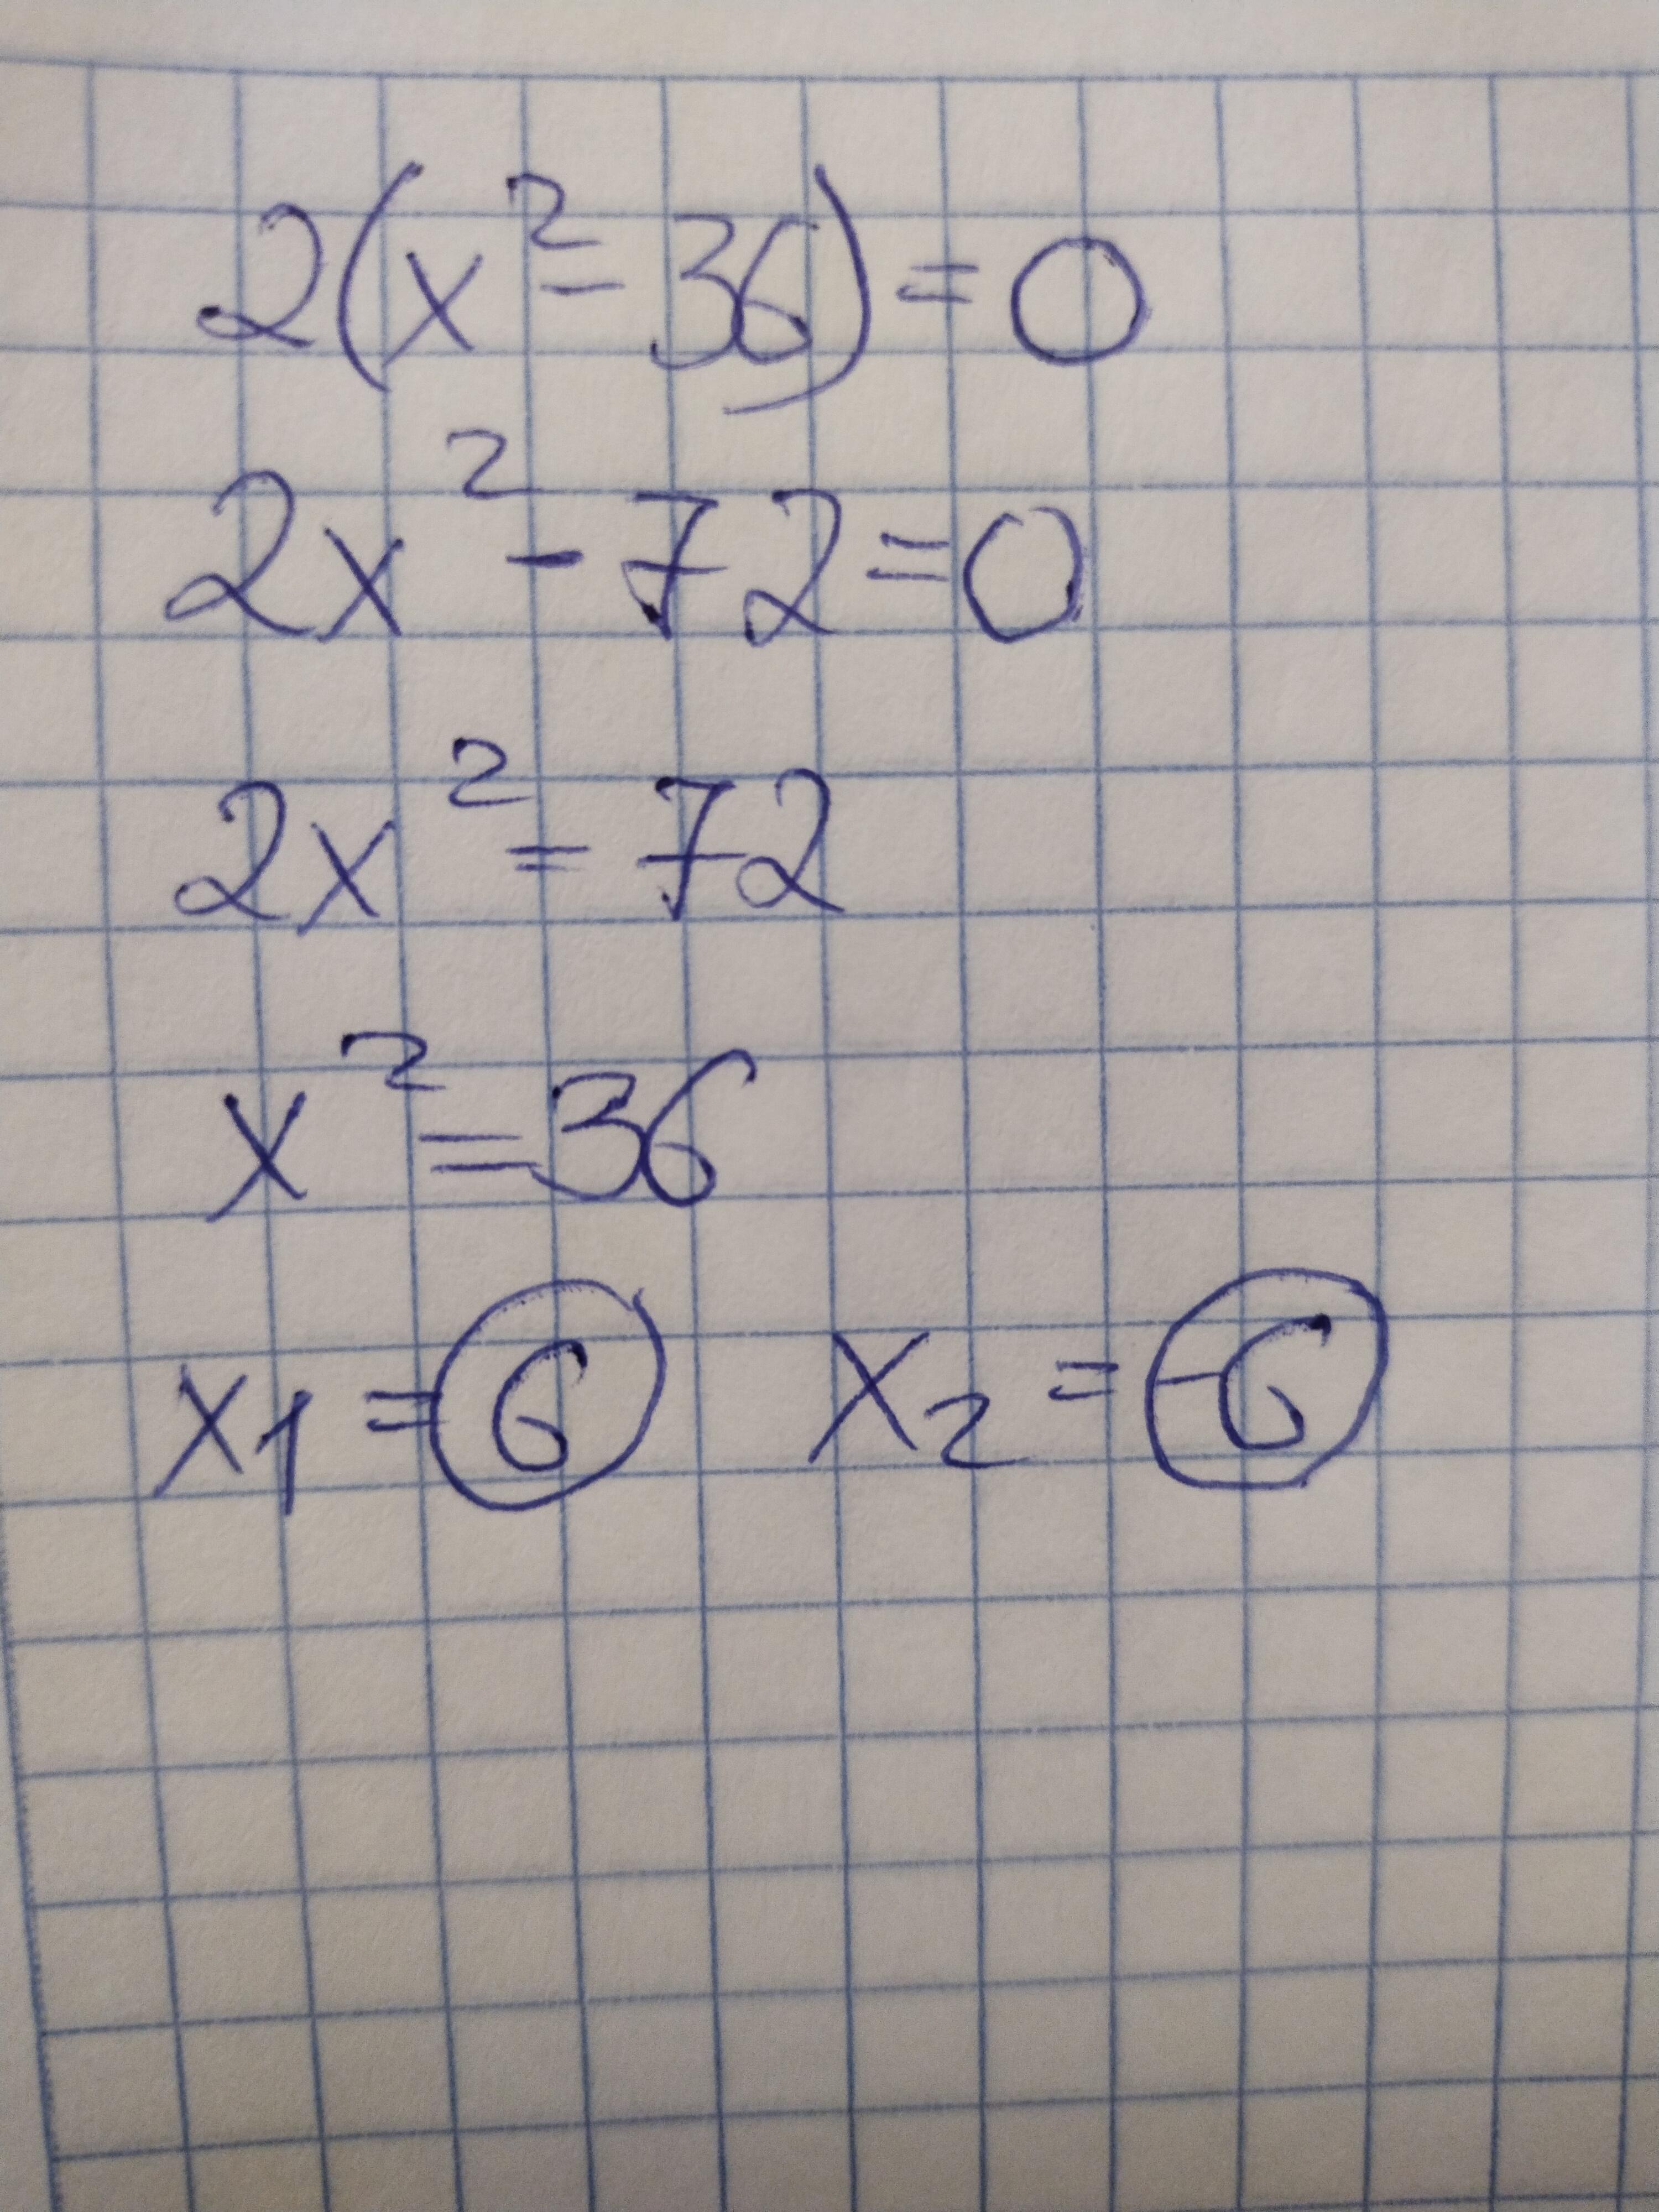 2(x²-36)=0
2x²-72=0
2x²=72
x²=36
x₁=6 x₂=-6